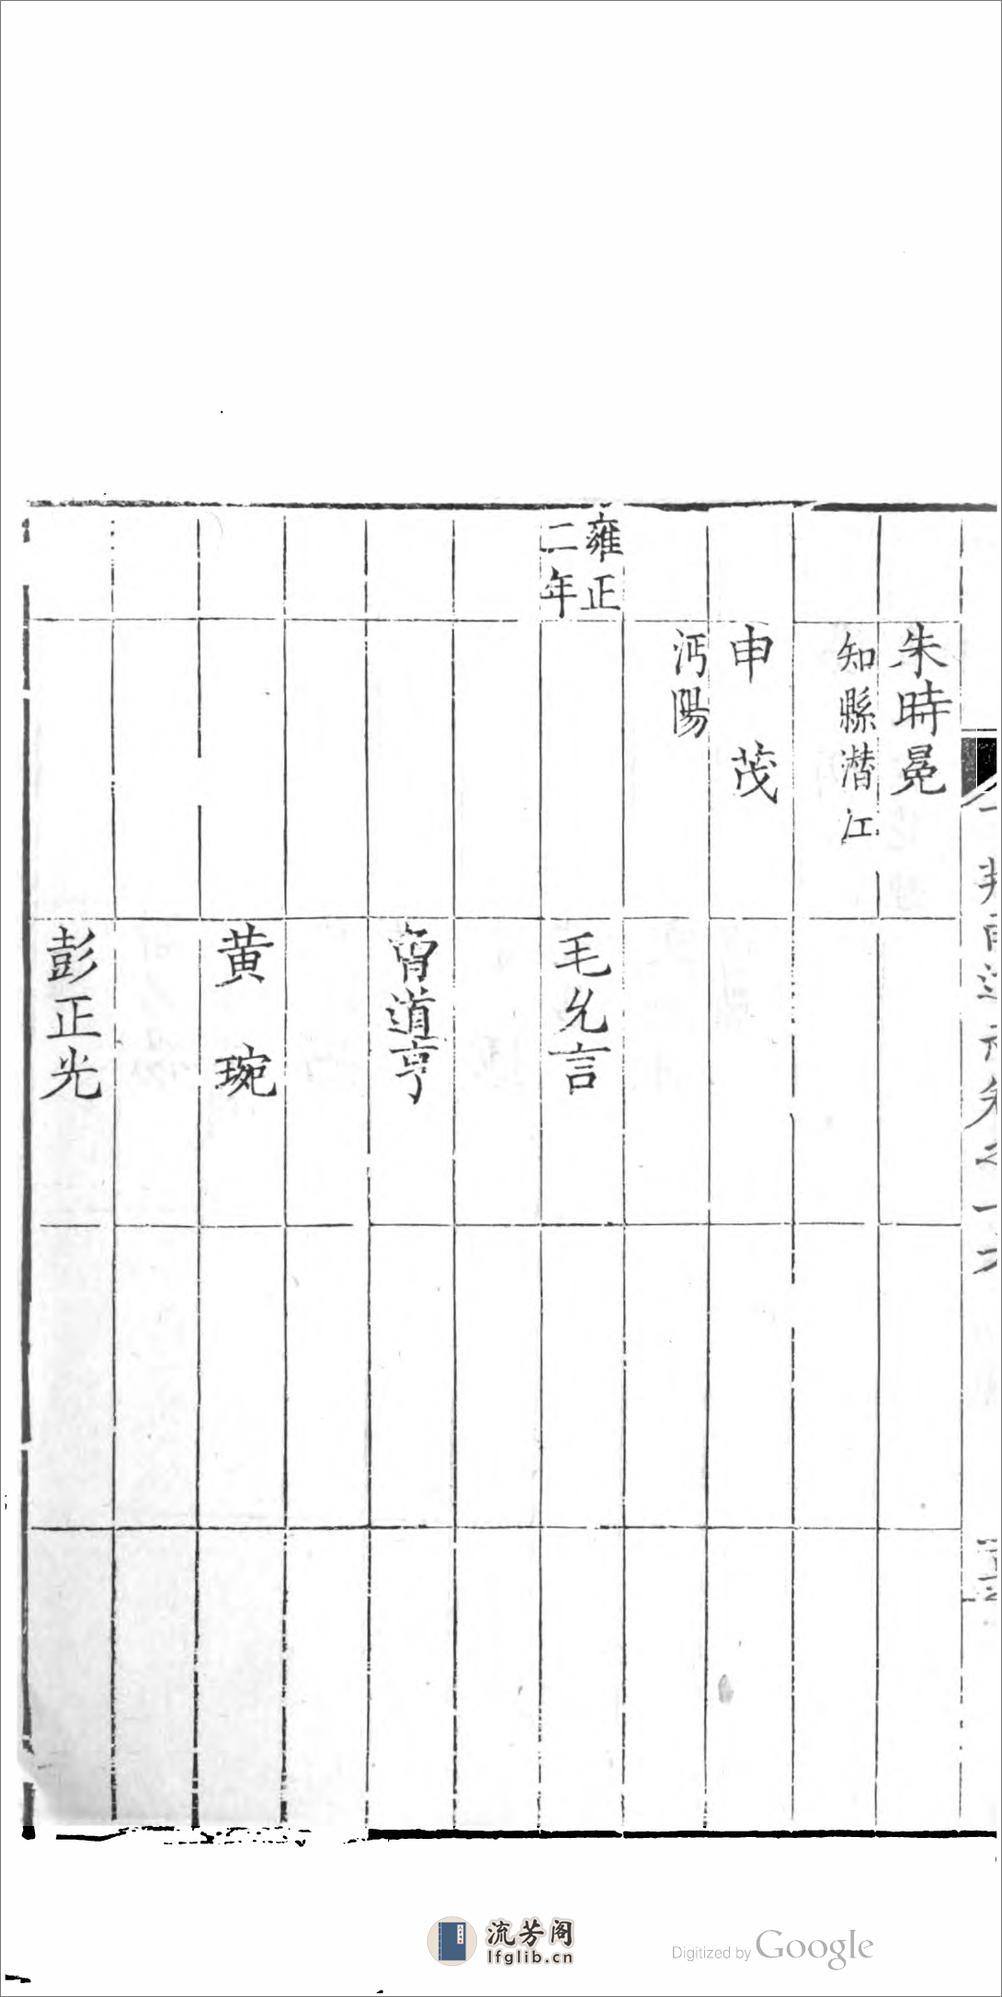 朱時冕
知縣潛江
申茂
沔陽
雍正
二年
毛允言
道亨
黄琬
彭正光
流芳阁
lfglib.cn
Digitized by Google